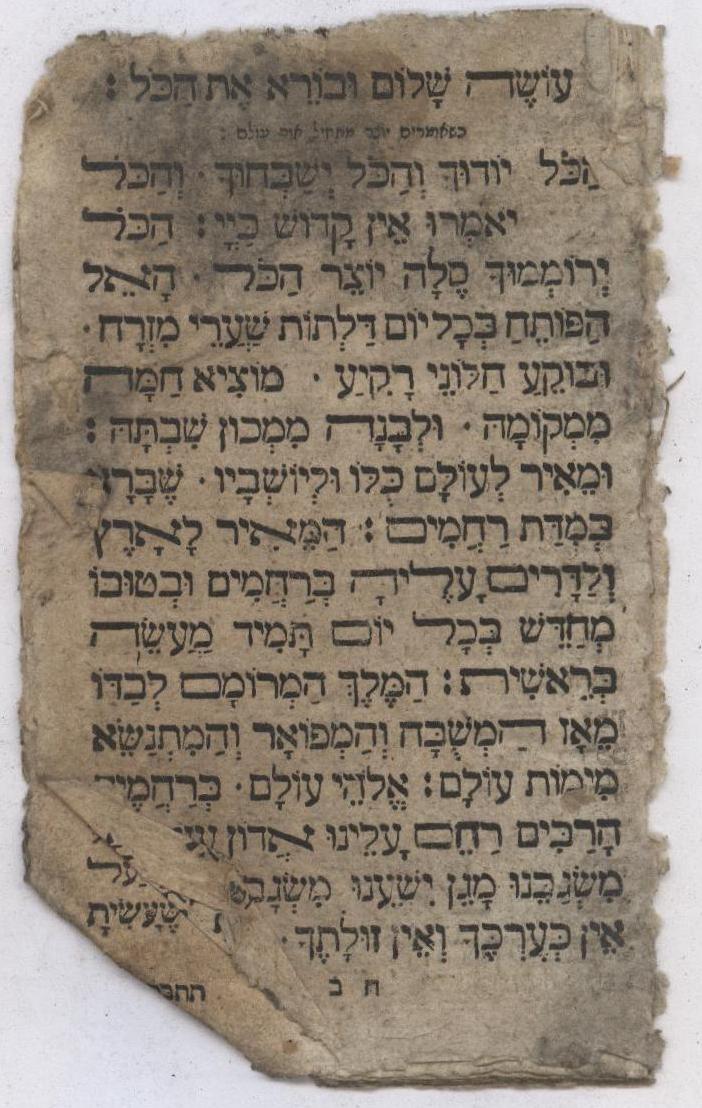 עוֹשֶׂה שָׁלוֹם וּבוֹרֵא אֶת הַכֹּל :
כשאומרים יוצר מתחיל אור עולם :
הַכֹּל יוֹדוּךָ וְהַכֹּל יְשַׁבְּחוּךָ · וְהַכֹּל
יֹאמְרוּ אֵין קָדוֹשׁ כַּיְיָ : הַכֹּל
יְרוֹמְמוּךָ סֶלָה יוֹצֵר הַכֹּל · הָאֵל
הַפּוֹתֵחַ בְּכָל יוֹם דַּלְתוֹת שַׁעֲרֵי מִזְרָח ·
וּבוֹקֵעַ חַלּוֹנֵי רָקִיעַ · מוֹצִיא חַמָּה
מִמְּקוֹמָהּ · וּלְבָנָה מִמְּכוֹן שִׁבְתָּהּ :
וּמֵאִיר לְעוֹלָם כֻּלּוֹ וּלְיוֹשְׁבָיו · שֶׁבָּרָא
בְּמִדַּת רַחֲמִים : הַמֵּאִיר לָאָרֶץ
וְלַדָּרִים עָלֶיהָ בְּרַחֲמִים וּבְטוּבוֹ
מְחַדֵּשׁ בְּכָל יוֹם תָּמִיד מַעֲשֵׂה
בְרֵאשִׁית : הַמֶּלֶךְ הַמְרוֹמָם לְבַדּוֹ
מֵאָז הַמְשֻׁבָּח וְהַמְפוֹאָר וְהַמִתְנַשֵּׂא
מִימוֹת עוֹלָם : אֱלֹהֵי עוֹלָם · בְּרַחֲמֶיךָ
הָרַבִּים רַחֵם עָלֵינוּ אֲדוֹן
מִשְׂגַּבֵּנוּ מָגֵן יִשְׁעֵנוּ
אֵין כְּעֶרְכֶּךָ וְאֵין זוּלָתֶךָ · שֶׁעָשִׂיתָ
ח ב